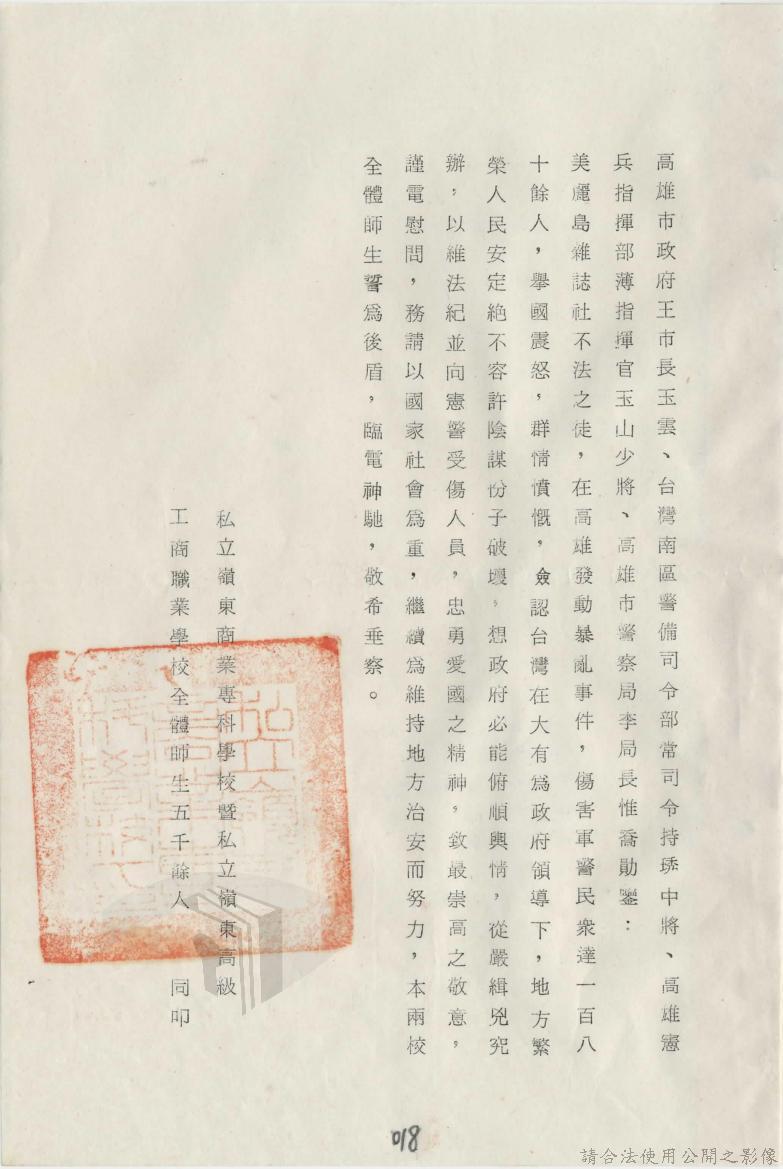 高雄市政府王市長玉雲、台灣南區警備司令部常司令持琇中將、高雄憲
兵指揮部薄指揮官玉山少將、高雄市警察局李局長惟喬勛鑒：
美麗島雜誌社不法之徒，在高雄發動暴亂事件，傷害軍警民衆達一百八
十餘人，舉國震怒，群情憤慨，僉認台灣在大有爲政府領導下，地方繁
榮人民安定絶不容許陰謀份子破壞，想政府必能俯順輿情，從嚴緝兇究
辦，以維法紀並向憲警受傷人員，忠勇愛國之精神，致最崇高之敬意，
謹電慰問，務請以國家社會爲重，繼續爲維持地方治安而努力，本兩校
全體師生誓爲後盾，臨電神馳，敬希垂察。
私立嶺東商業專科學校暨私立嶺東高級
工商職業學校全體師生五千餘人　同叩
018
請合法使用公開之影像